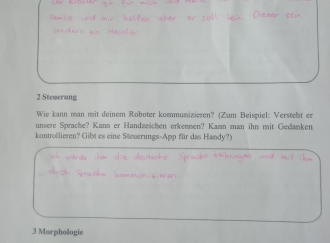 der Roboter für mich und mein
und mir helfen aber er soll kein Diener sein
sondern ein
2 Steuerung
Wie kann man mit deinem Roboter kommunizieren? (Zum Beispiel: Versteht er
unsere Sprache? Kann er Handzeichen erkennen? Kann man ihn mit Gedanken
kontrollieren? Gibt es eine Steuerungs-App für das Handy?)
ich würde ihm die deutsche Sprache und mit ihm
durch Sprache kommunizieren
3 Morphologie